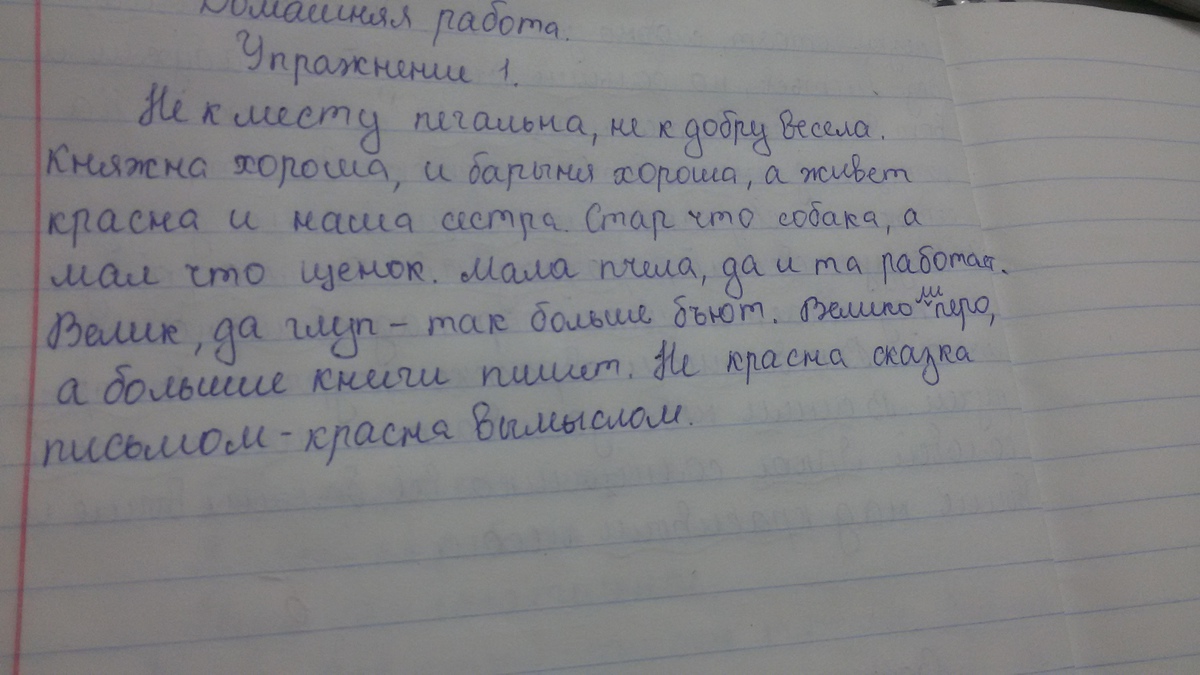 Домашняя работа.
Упражнение 1.
Не к месту печальна, не к добру весела.
Княжна хороша, и барыня хороша, а живет
красна и наша сестра. Стар что собака, а
мал что щенок. Мала пчела, да и та работает.
Велик, да глуп – так больше бьют. Велико ли перо,
а большие книги пишет. Не красна сказка
письмом – красна вымыслом.